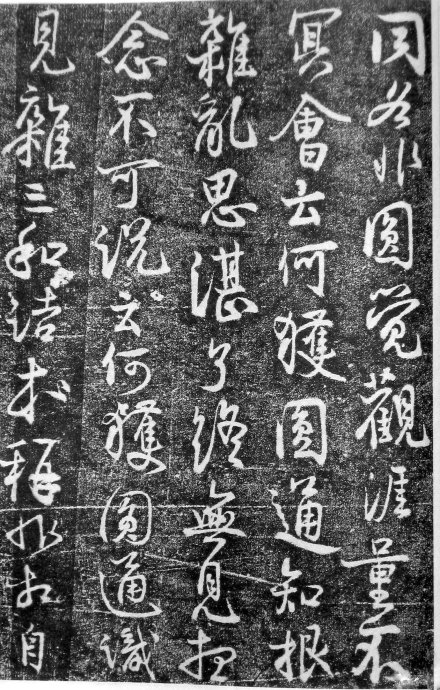 同各非圓覺觀涯量不
冥會云何獲圓通知根
雜亂思湛了終無見想
念不可脫云何獲圓通識
見雜三和詰本稱非相自